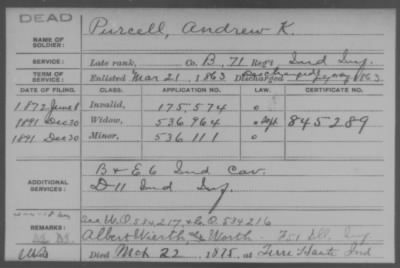 DEAD
NAME OF SOLDIER: Purcell, Andrew K.
SERVICE: Late rank, Co. B, 71 Reg't Ind Inf.
TERM OF SERVICE: Enlisted Mar 21, 1863 Discharged 1863
DATE OF FILING. CLASS. APPLICATION NO. LAW. CERTIFICATE NO.
1872 June 8 Invalid, 175,574
1891 Dec 30 Widow, 536,964 845289
1891 Dec 30 Minor, 536111
ADDITIONAL SERVICES: B & E 6 Ind Cav.
D 11 Ind Inf.
See W.O. 534,217 & C.O. 534216
REMARKS: Albert Wierth or Worth - Ill. Inf.
Died Mch 22, 1875, at Terre Haute Ind